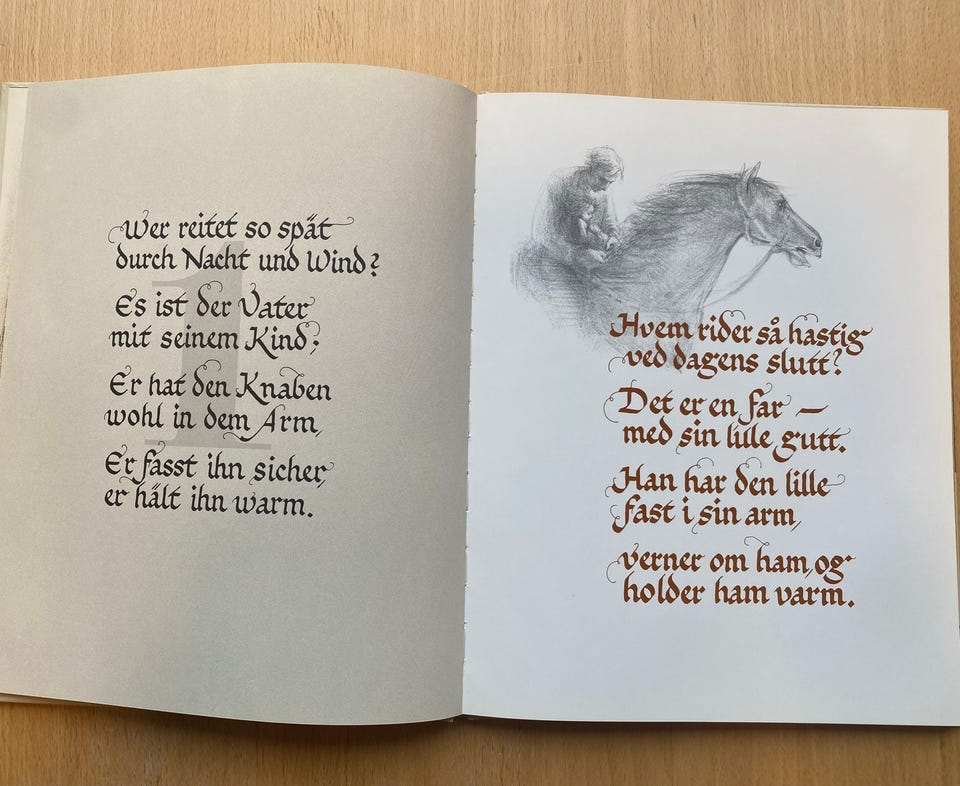 Wer reitet so spät
durch Nacht und Wind?
Es ist der Vater
mit seinem Kind;
Er hat den Knaben
wohl in dem Arm,
Er fasst ihn sicher,
er hält ihn warm.
1
Hvem rider så hastig
ved dagens slutt?
Det er en far —
med sin lille gutt.
Han har den lille
fast i sin arm,
verner om ham, og
holder ham varm.